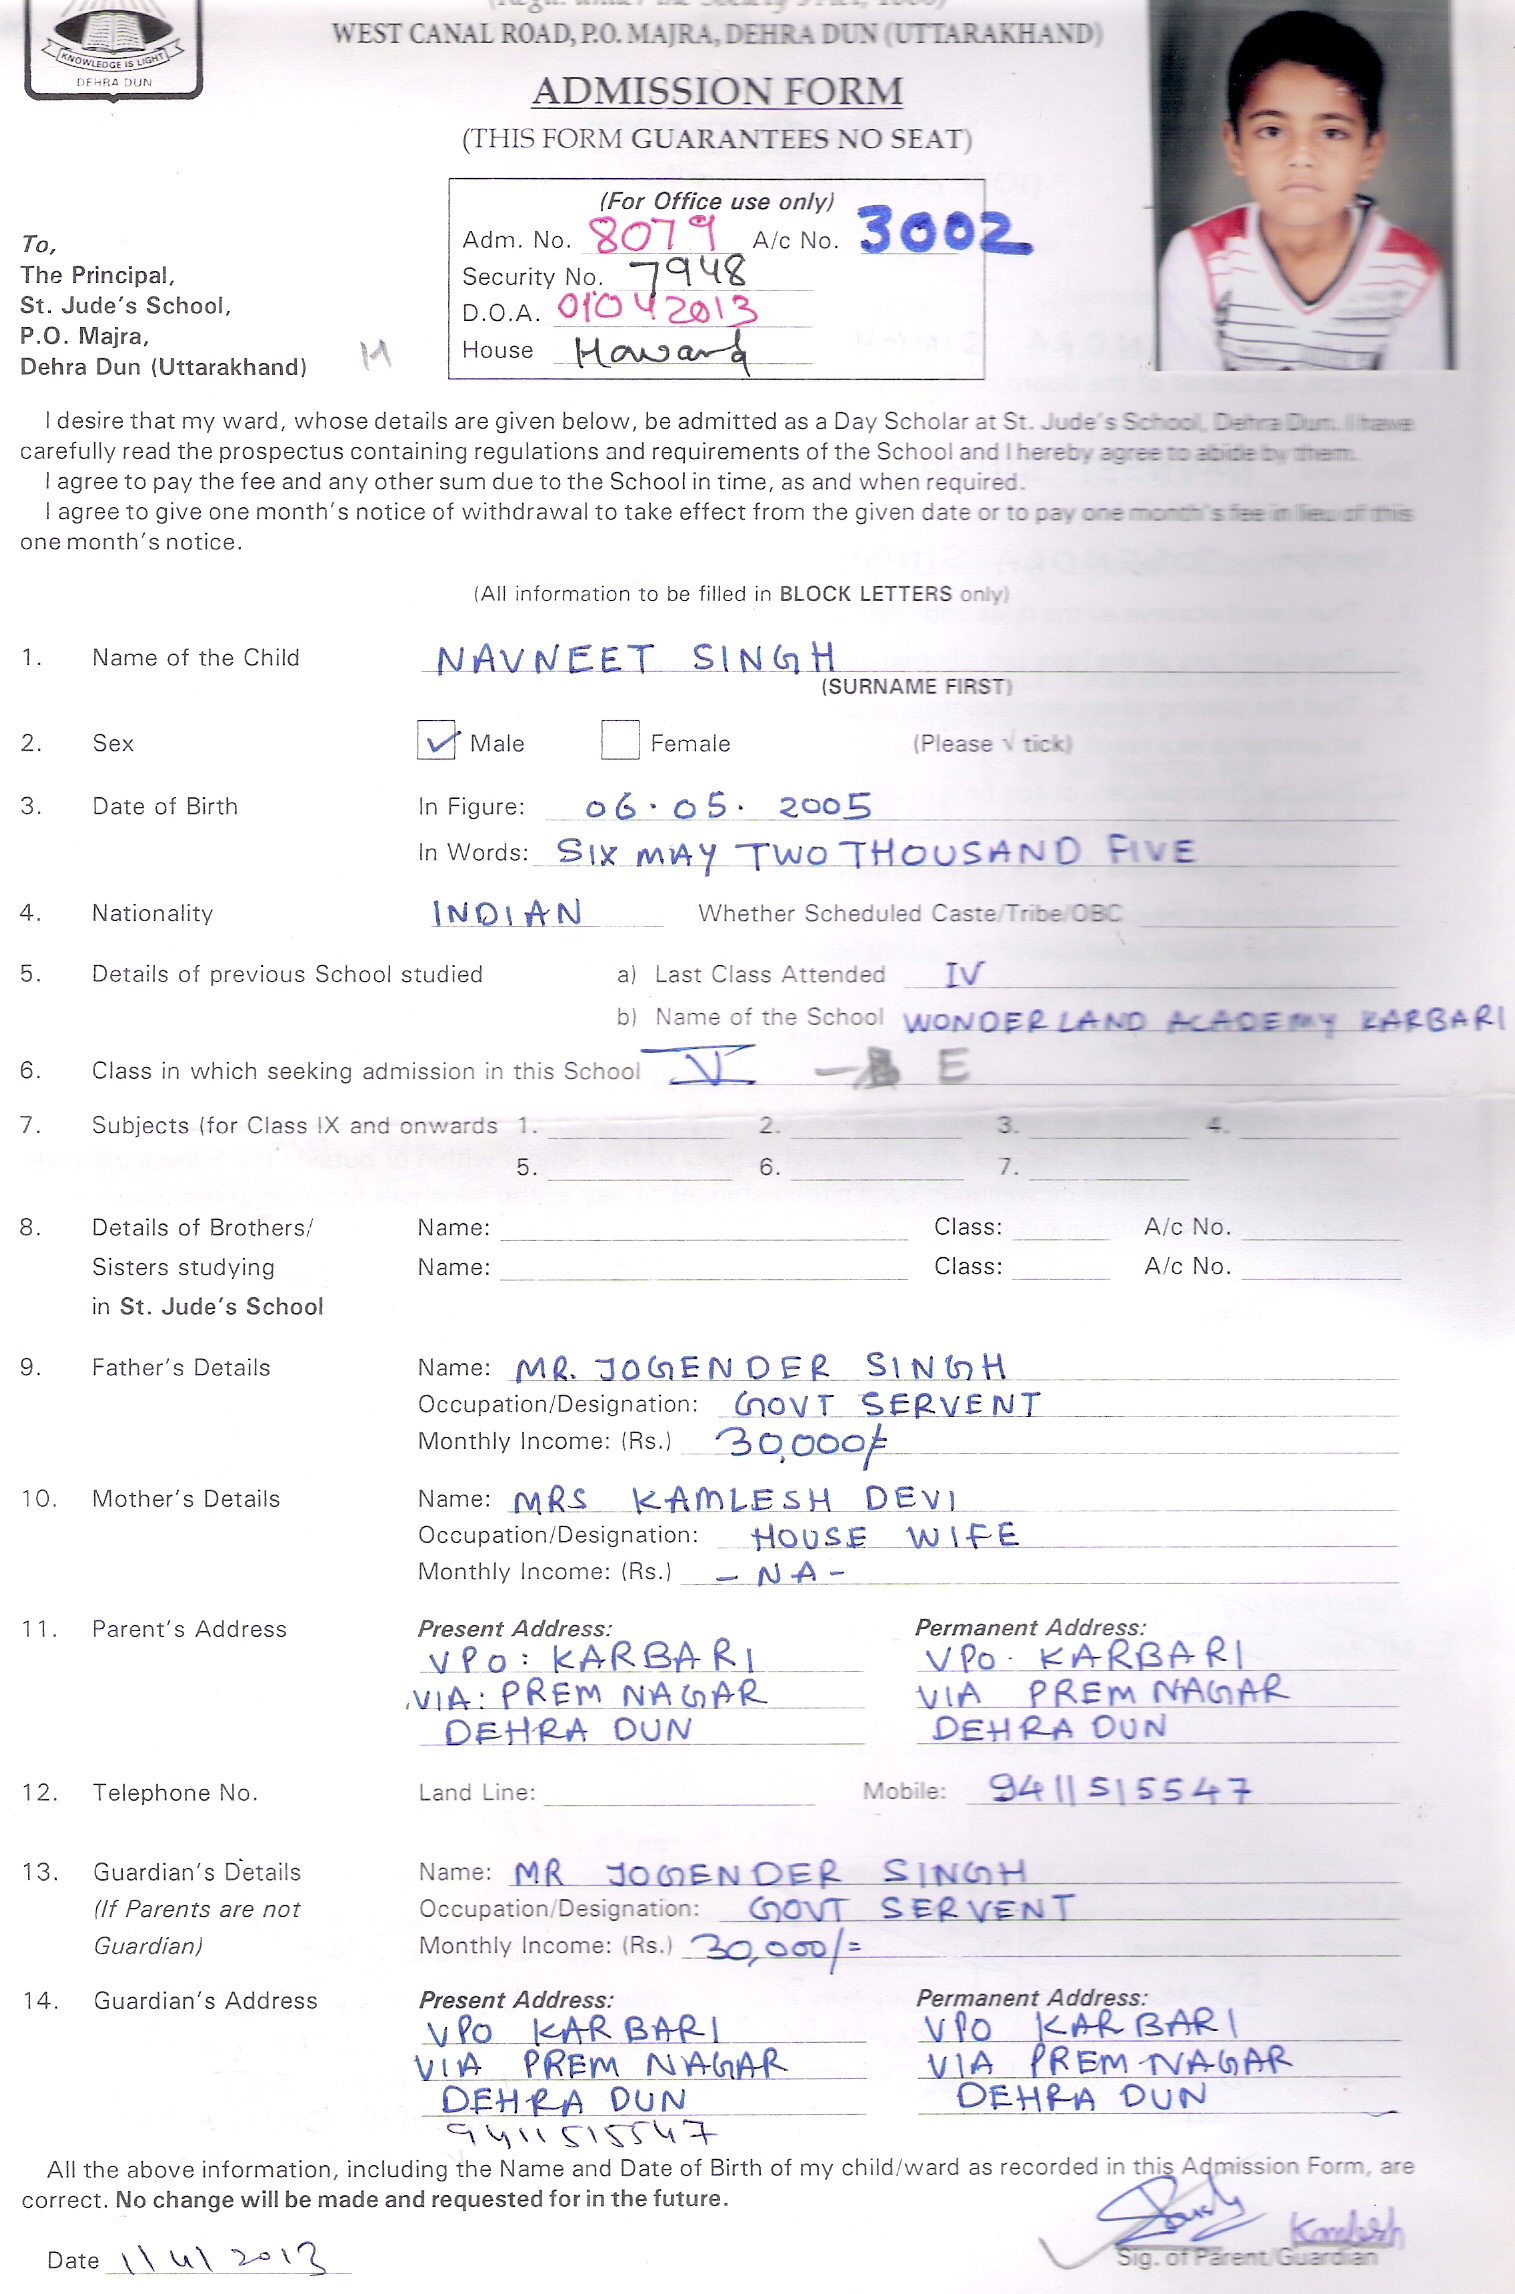 KNOWLEDGE IS LIGHT
DEHRA DUN
WEST CANAL ROAD, P.O. MAJRA, DEHRA DUN (UTTARAKHAND)
ADMISSION FORM
(THIS FORM GUARANTEES NO SEAT)
(For Office use only)
Adm. No. 8079 A/c No. 3002
Security No. 7948
D.O.A. 01042013
House Howard
To,
The Principal,
St. Jude's School,
P.O. Majra,
Dehra Dun (Uttarakhand) M
I desire that my ward, whose details are given below, be admitted as a Day Scholar at St. Jude's School, Dehra Dun. I have
carefully read the prospectus containing regulations and requirements of the School and I hereby agree to abide by them.
I agree to pay the fee and any other sum due to the School in time, as and when required.
I agree to give one month's notice of withdrawal to take effect from the given date or to pay one month's fee in lieu of this
one month's notice.
(All information to be filled in BLOCK LETTERS only)
1. Name of the Child NAVNEET SINGH
(SURNAME FIRST)
2. Sex Male Female (Please √ tick)
3. Date of Birth In Figure: 06.05.2005
In Words: SIX MAY TWO THOUSAND FIVE
4. Nationality INDIAN Whether Scheduled Caste/Tribe/OBC
5. Details of previous School studied a) Last Class Attended IV
b) Name of the School WONDERLAND ACADEMY KARBARI
6. Class in which seeking admission in this School V - E
7. Subjects (for Class IX and onwards 1. 2. 3. 4.
5. 6. 7.
8. Details of Brothers/ Name: Class: A/c No.
Sisters studying Name: Class: A/c No.
in St. Jude's School
9. Father's Details Name: MR. JOGENDER SINGH
Occupation/Designation: GOVT SERVENT
Monthly Income: (Rs.) 30,000/=
10. Mother's Details Name: MRS KAMLESH DEVI
Occupation/Designation: HOUSE WIFE
Monthly Income: (Rs.) - NA -
11. Parent's Address Present Address: Permanent Address:
VPO: KARBARI VPO. KARBARI
VIA: PREM NAGAR VIA PREM NAGAR
DEHRA DUN DEHRA DUN
12. Telephone No. Land Line: Mobile: 9411515547
13. Guardian's Details Name: MR JOGENDER SINGH
(If Parents are not Occupation/Designation: GOVT SERVENT
Guardian) Monthly Income: (Rs.) 30,000/=
14. Guardian's Address Present Address: Permanent Address:
VPO KARBARI VPO KARBARI
VIA PREM NAGAR VIA PREM NAGAR
DEHRA DUN DEHRA DUN
9411515547
All the above information, including the Name and Date of Birth of my child/ward as recorded in this Admission Form, are
correct. No change will be made and requested for in the future.
Kamlesh
Date 11/4/2013 Sig. of Parent/Guardian